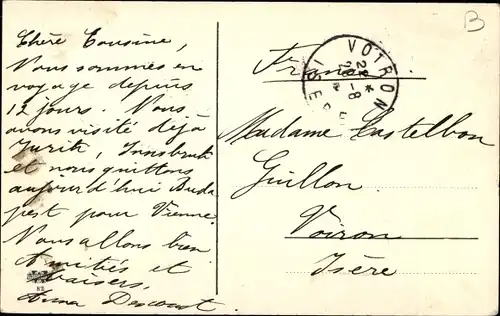 Chère Cousine,
Nous sommes en
voyage depuis
12 jours. Nous
avons visité déjà
Zurich, Innsbruck
et nous quittons
aujourd'hui Buda
pest pour Vienne.
Nous allons bien
Amitiés et
baisers,
Anna
France
Madame Castelbon
Guillon
Voiron
Isère
VOIRON
ISERE
B